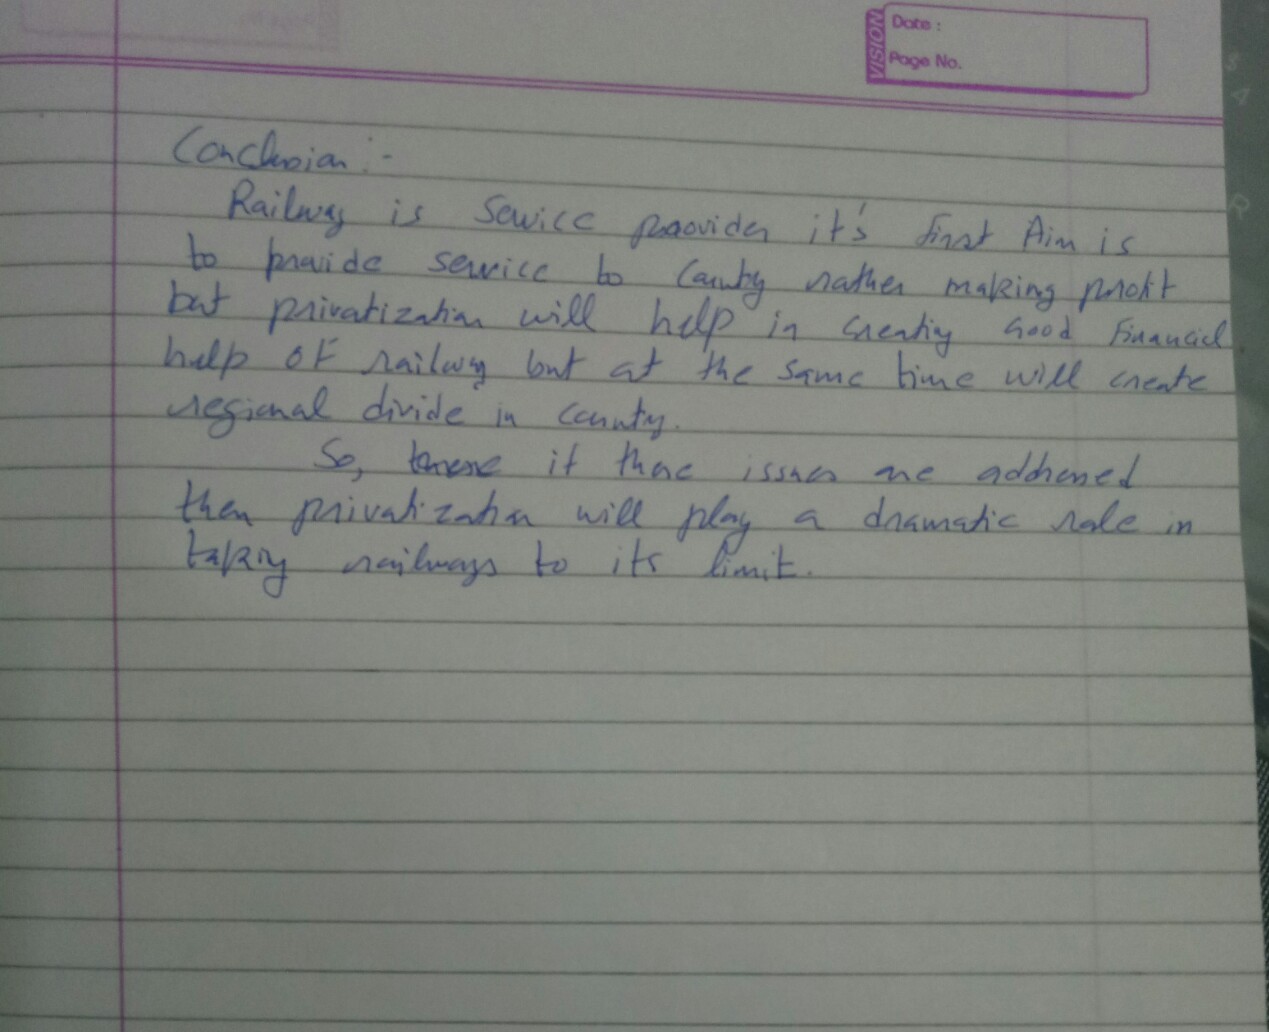 VISION
Date :
Page No.
Conclusion :-
Railway is Service provider it's first Aim is
to provide service to Country rather making profit
but privatization will help in creating Good Financial
help of railway but at the same time will create
regional divide in country.
So, if these issues are addressed
then privatization will play a dramatic role in
taking railways to its limit.